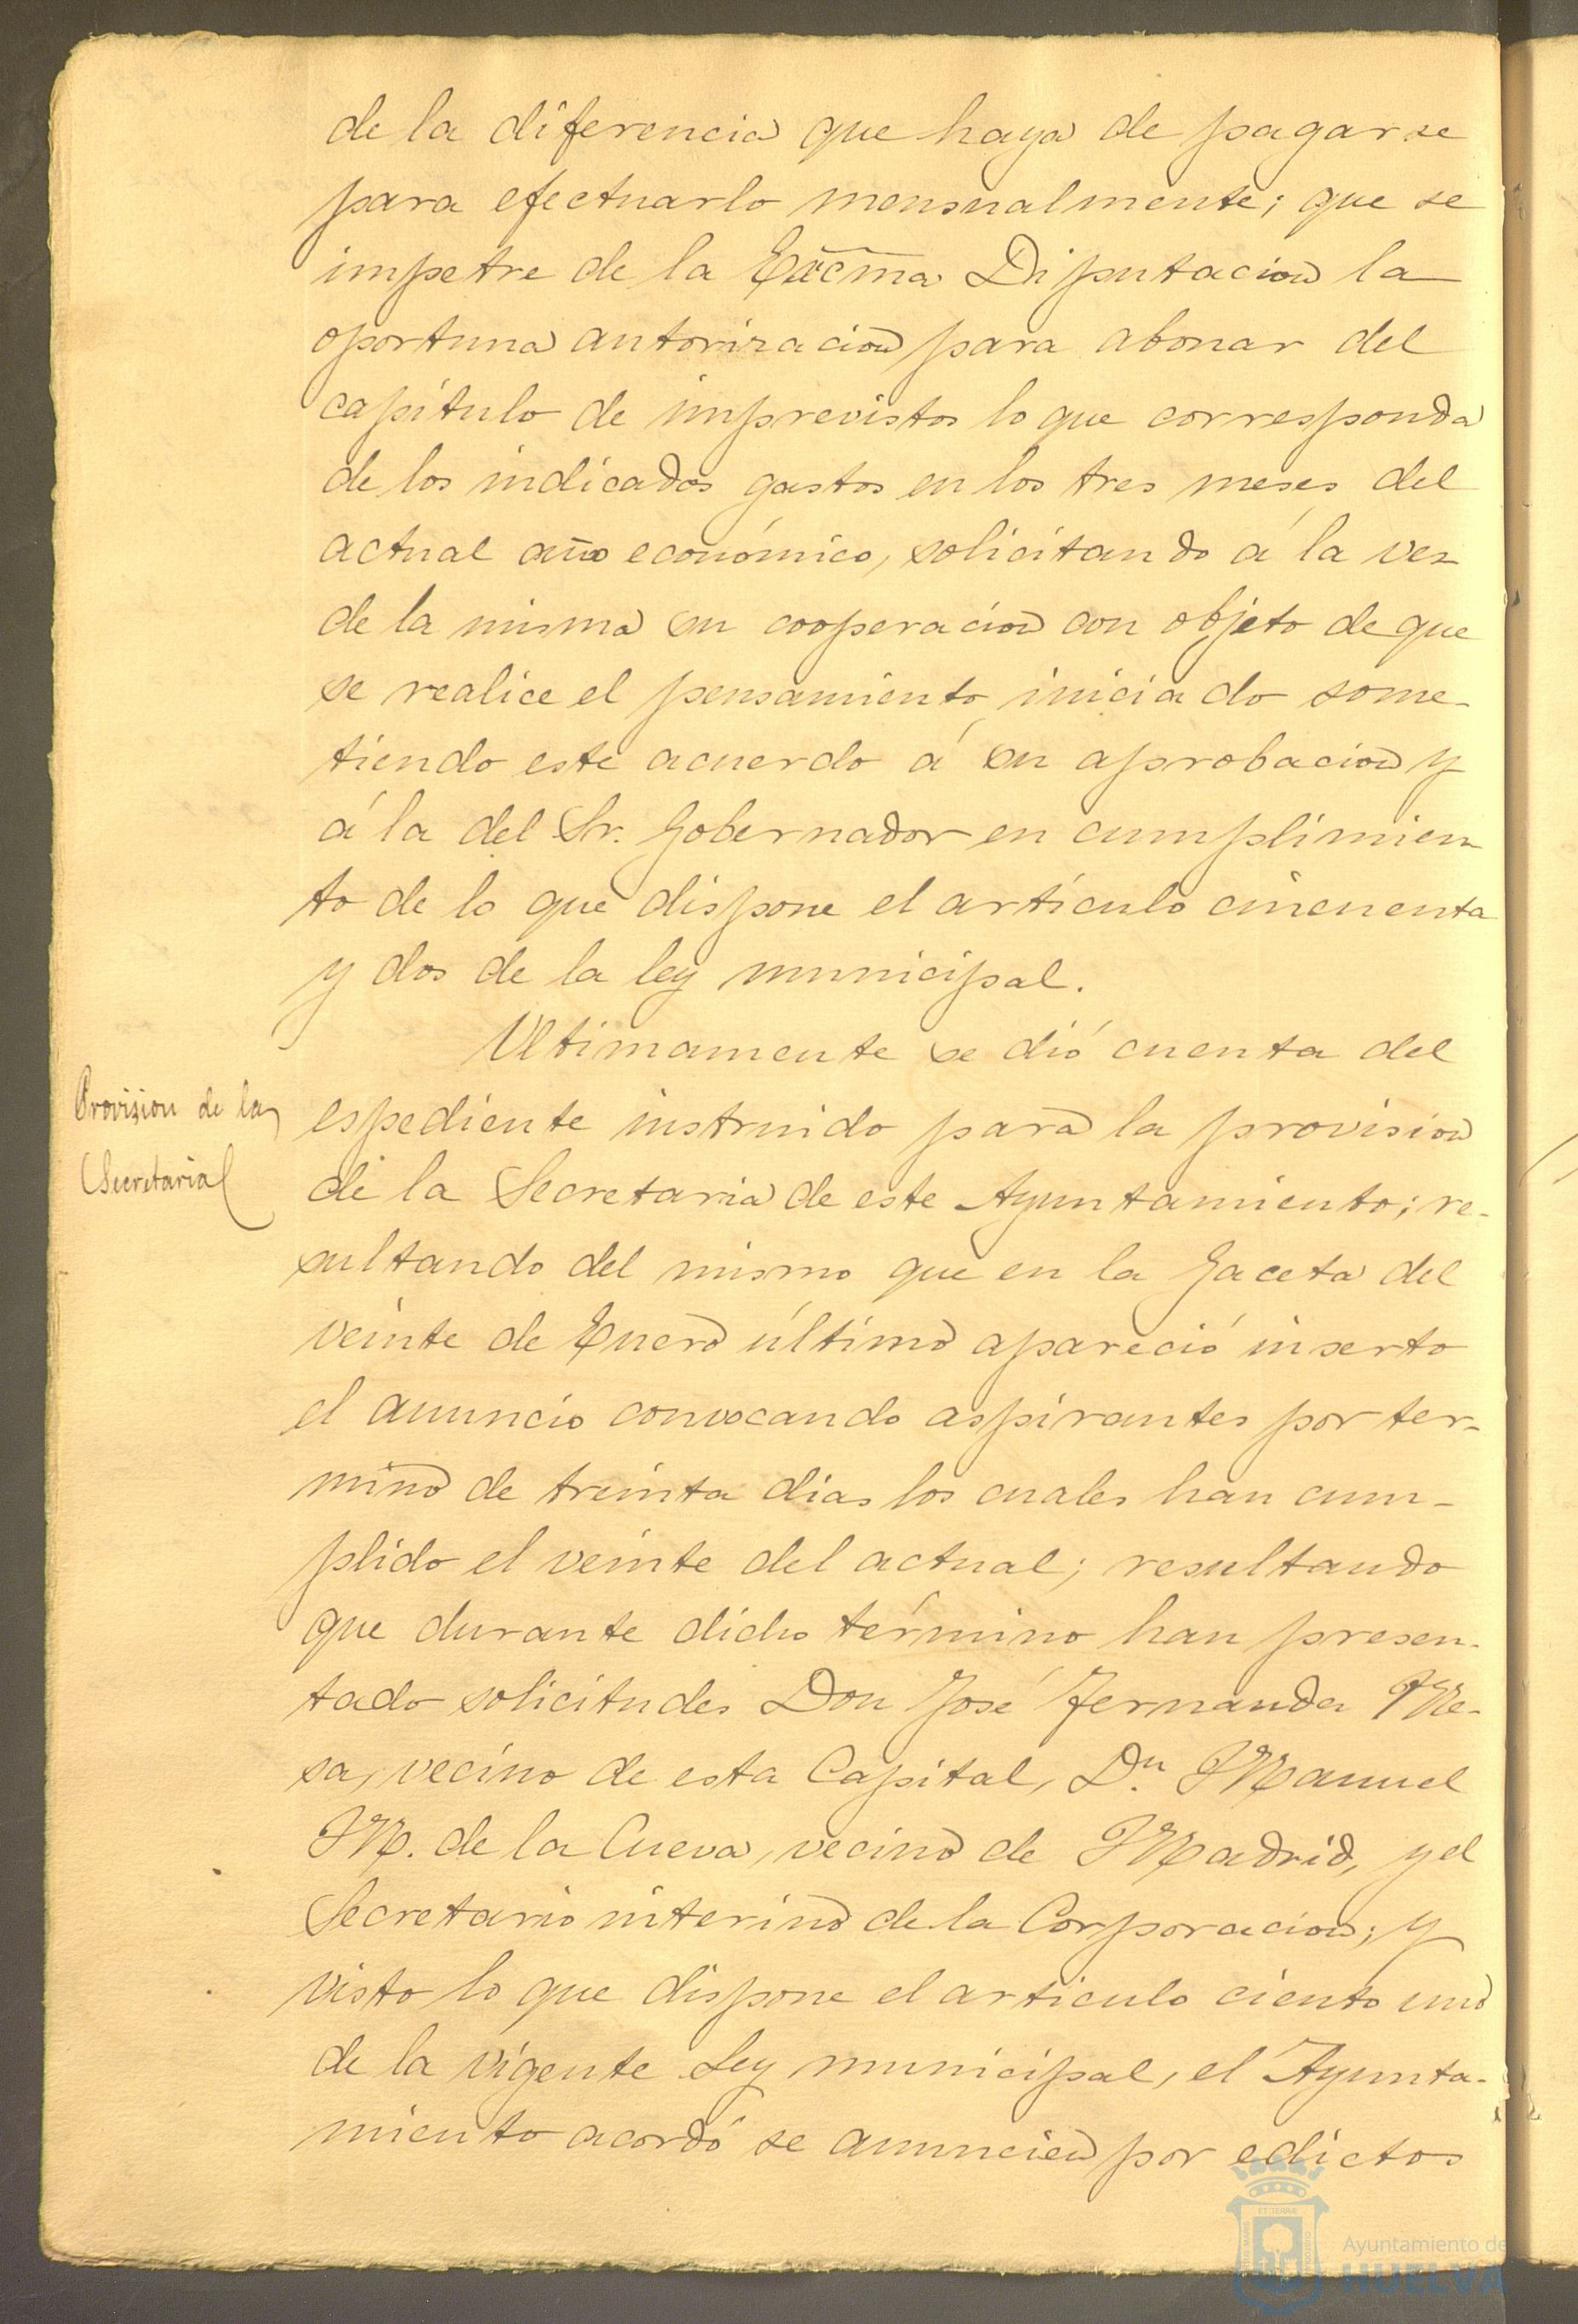 de la diferencia que haya de pagarse
para efectuarlo mensualmente; que se
impetre de la Excma Diputacion la
oportuna autorizacion para abonar del
capítulo de imprevistos lo que corresponda
de los indicados gastos en los tres meses del
actual año económico, solicitando á la vez
de la misma su cooperacion con objeto de que
se realice el pensamiento iniciado some-
tiendo este acuerdo á su aprobacion y
á la del Sr. Gobernador en cumplimien
to de lo que dispone el artículo cincuenta
y dos de la ley municipal.
Ultimamente se dió cuenta del
Provision de la
Secretaria
espediente instruido para la provision
de la Secretaria de este Ayuntamiento; re-
sultando del mismo que en la Gaceta del
veinte de Enero último apareció inserto
el anuncio convocando aspirantes por ter-
mino de treinta dias los cuales han cum-
plido el veinte del actual; resultando
que durante dicho término han presen-
tado solicitudes Don José Fernandez Me-
sa, vecino de esta Capital, Dn. Manuel
M. de la Cueva, vecino de Madrid, y el
Secretario interino de la Corporacion; y
visto lo que dispone el articulo ciento uno
de la vigente Ley municipal, el Ayunta-
miento acordó se anuncien por edictos
Ayuntamiento de
HUELVA